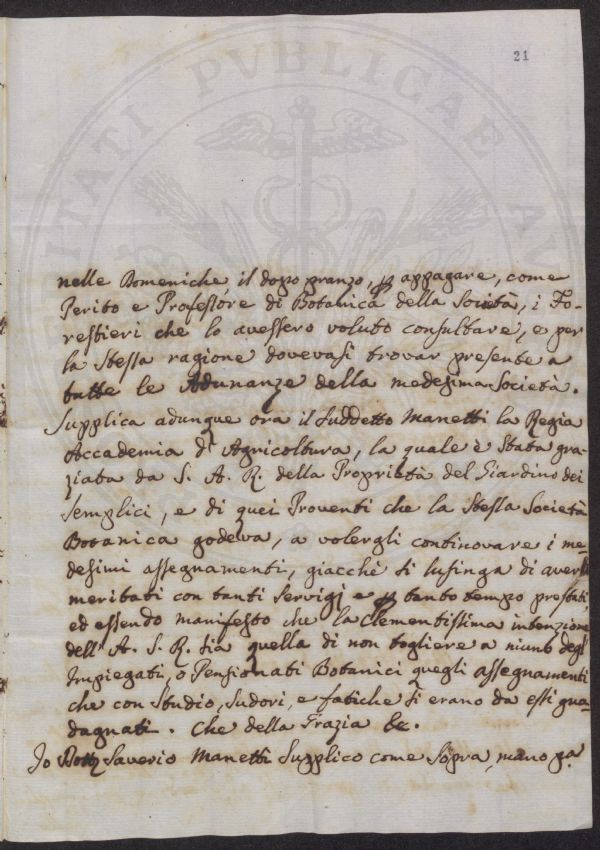 21
nelle Domeniche il dopo pranzo, p appagare, come
Perito e Professore di Botanica della Società, i Fo-
restieri che lo avessero voluto consultare, e per
la Stessa ragione dovevasi trovar presente a
tutte le Adunanze della medesima Società.
Supplica adunque ora il Suddetto Manetti la Regia
Accademia d'Agricoltura, la quale è Stata gra-
ziata da S. A. R. della Proprietà del Giardino dei
Semplici, e di quei Proventi che la Stessa Società
Botanica godeva, a volergli continovare i me-
desimi assegnamenti, giacché si lusinga di averli
meritati con tanti Servigj e p tanto tempo prestati,
ed essendo manifesto che la Clementissima intenzione
dell'A. S. R. sia quella di non togliere a niuno degl'
Impiegati, o Pensionati Botanici quegli assegnamenti
che con Studio, Sudori, e fatiche si erano da essi gua-
dagnati. Che della Grazia &c.
Io Saverio Manetti Supplico come Sopra, mano pa
CITATI PVBLICAE AV